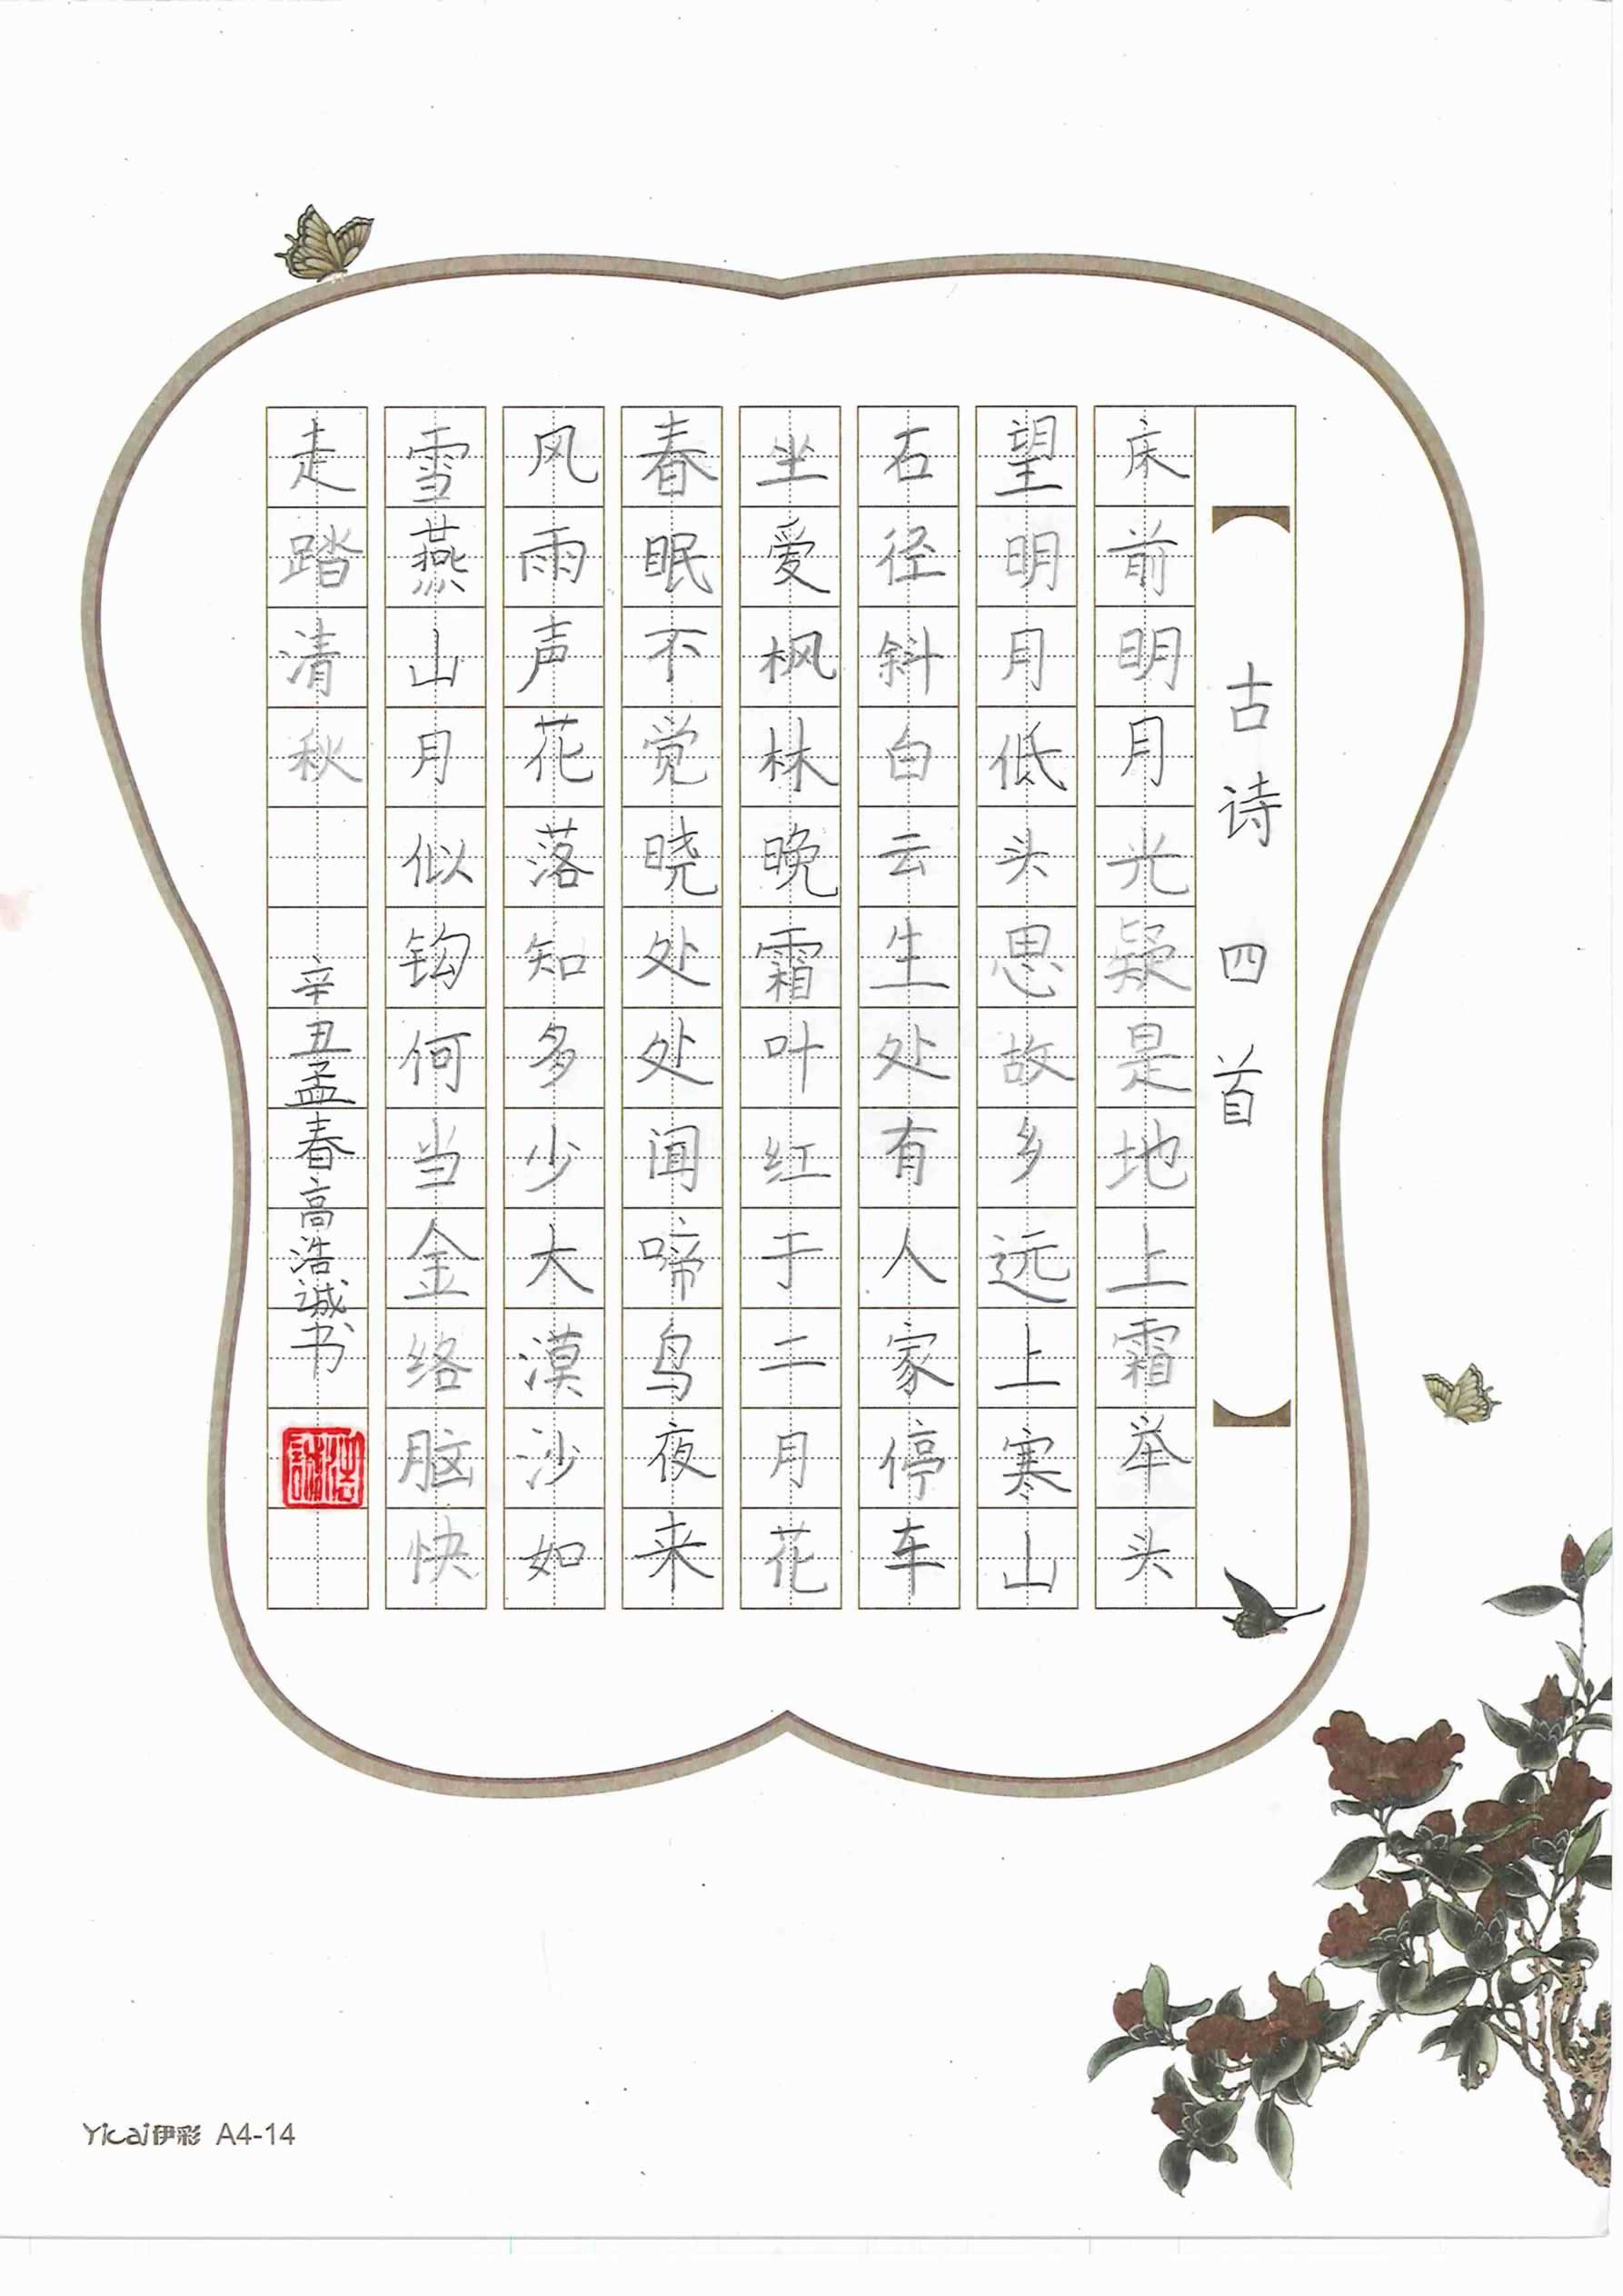 古诗四首
床前明月光疑是地上霜举头
望明月低头思故乡远上寒山
石径斜白云生处有人家停车
坐爱枫林晚霜叶红于二月花
春眠不觉晓处处闻啼鸟夜来
风雨声花落知多少大漠沙如
雪燕山月似钩何当金络脑快
走踏清秋
辛丑孟春高浩诚书
浩誠
Yicai伊彩 A4-14